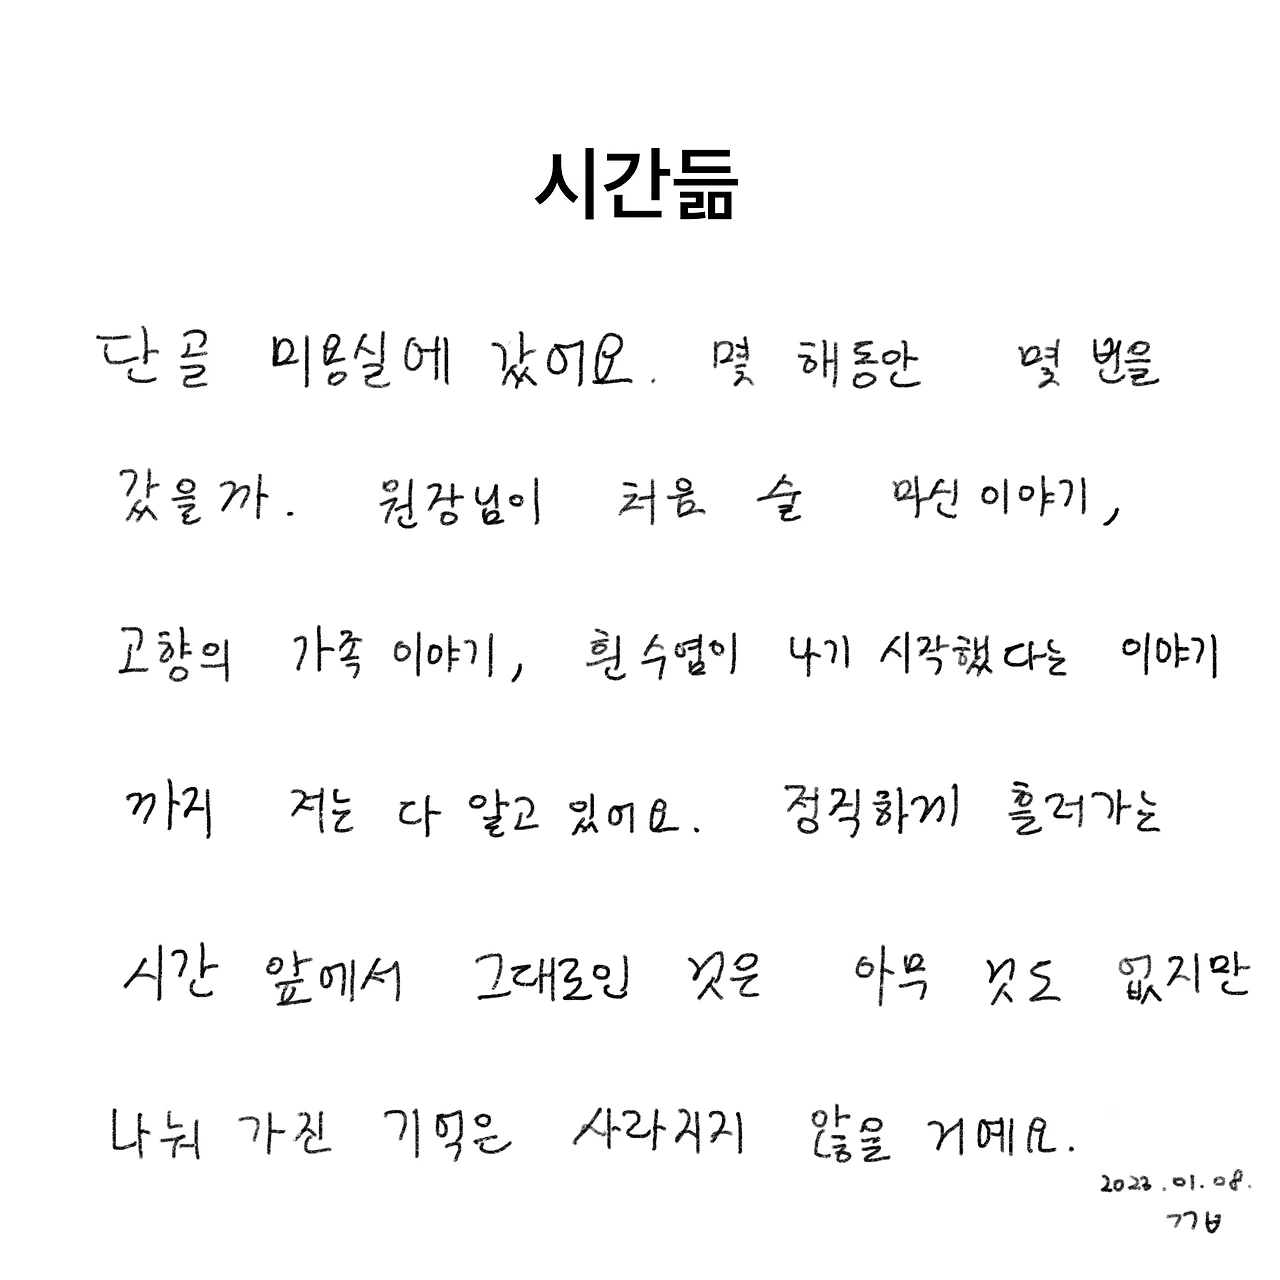 시간듦
단골 미용실에 갔어요. 몇 해동안 몇 번을
갔을까. 원장님이 처음 술 마신 이야기,
고향의 가족 이야기, 흰 수염이 나기 시작했다는 이야기
까지 저는 다 알고 있어요. 정직하게 흘러가는
시간 앞에서 그대로인 것은 아무 것도 없지만
나눠 가진 기억은 사라지지 않을 거예요.
2023.01.08.
ㄱㄱㅂ